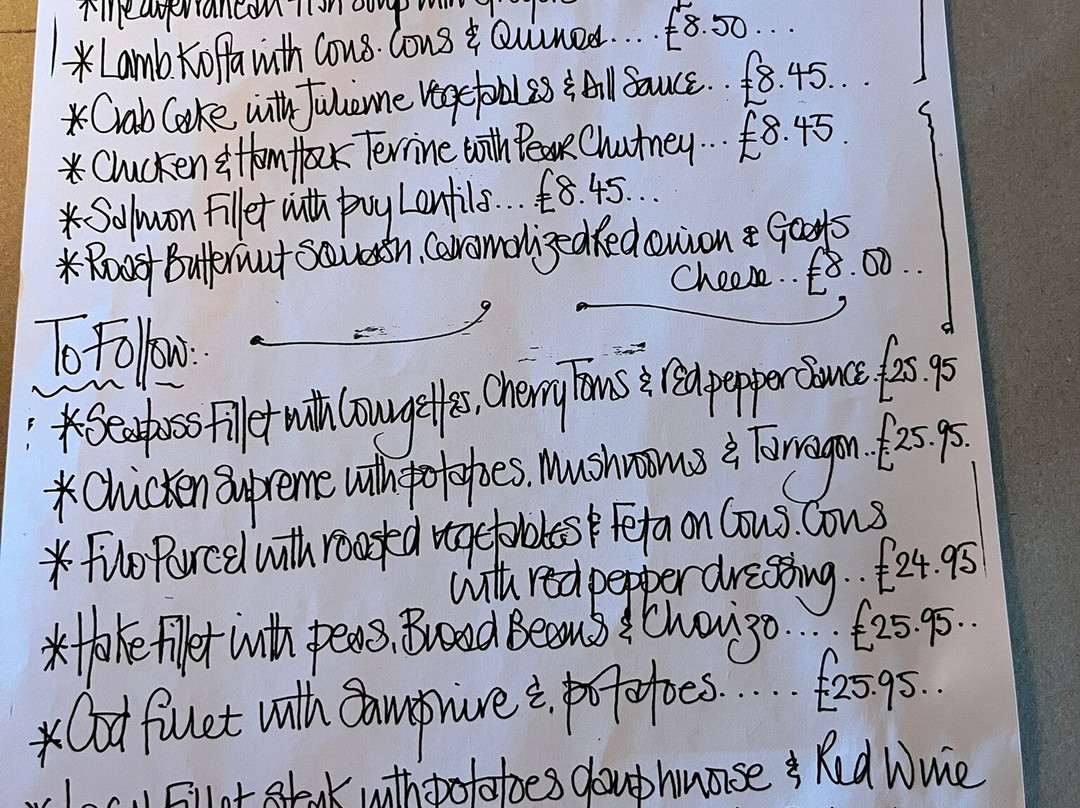 *Mediterranean Fish Soup with
*Lamb Kofta with Cous.Cous & Quinoa....£8.50...
*Crab Cake with Julienne vegetables & Dill Sauce..£8.45...
*Chicken & Ham Hock Terrine with Pear Chutney...£8.45.
*Salmon Fillet with puy Lentils...£8.45...
*Roast Butternut Squash, Caramalized Red onion & Goats
Cheese..£8.00..
To Follow:.
*Seabass Fillet with Courgettes, Cherry Toms & red pepper Sauce.£25.95
*Chicken Supreme with potatoes, Mushrooms & Tarragon..£25.95.
*Filo Parcel with roasted vegetables & Feta on Cous.Cous
with red pepper dressing..£24.95
*Hake Fillet with peas, Broad Beans & Chorizo....£25.95..
*Cod fillet with Samphire & potatoes.....£25.95..
*Local Fillet Steak with potatoes dauphinoise & Red Wine